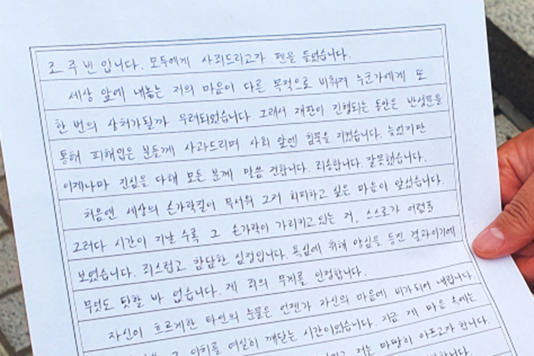 조주빈입니다. 모두에게 사죄드리고자 펜을 들었습니다.
세상 앞에 내놓는 저의 마음이 다른 목적으로 비춰져 누군가에게 또
한 번의 상처가될까 우려되었습니다. 그래서 재판이 진행되는 동안은 반성문을
통해 피해입은 분들께 사과드리며 사회 앞엔 침묵을 지켰습니다. 늦었지만
이제나마 진심을 다해 모든 분께 말씀 전합니다. 죄송합니다. 잘못했습니다.
처음엔 세상의 손가락질이 무서워 그저 회피하고 싶은 마음이 앞섰습니다.
그러다 시간이 지날 수록 그 손가락이 가리키고있는 저, 스스로가 어렴풋
보였습니다. 죄스럽고 참담한 심정입니다. 욕심에 취해 양심을 등진 결과이기에
무엇도 탓할 바 없습니다. 제 죄의 무게를 인정합니다.
자신이 흐르게한 타인의 눈물은 언젠가 자신의 마음에 비가되어 내립니다
이치를 여실히 깨닫는 시간이었습니다. 지금 제 마음 속에는
저는 마땅히 아프고자 합니다.